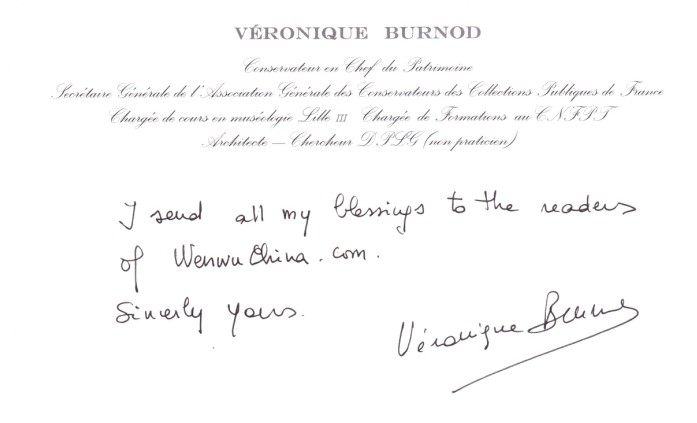 VÉRONIQUE BURNOD
Conservateur en Chef du Patrimoine
Secrétaire Générale de l'Association Générale des Conservateurs des Collections Publiques de France
Chargée de cours en muséologie Lille III Chargée de Formations au CNFPT
Architecte — Chercheur DPLG (non praticien)
I send all my blessings to the readers
of WenwuChina.com.
Sincerly yours.
Véronique Burnod